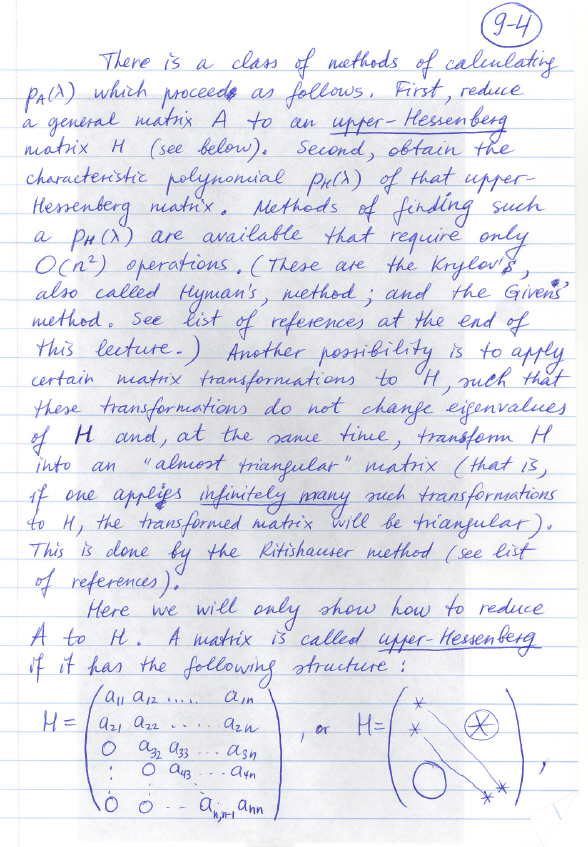 9-4
There is a class of methods of calculating
p_A(λ) which proceeds as follows. First, reduce
a general matrix A to an upper-Hessenberg
matrix H (see below). Second, obtain the
characteristic polynomial p_H(λ) of that upper-
Hessenberg matrix. Methods of finding such
a p_H(λ) are available that require only
O(n²) operations. (These are the Krylov's,
also called Hyman's, method; and the Givens'
method. See list of references at the end of
this lecture.) Another possibility is to apply
certain matrix transformations to H, such that
these transformations do not change eigenvalues
of H and, at the same time, transform H
into an "almost triangular" matrix (that is,
if one applies infinitely many such transformations
to H, the transformed matrix will be triangular).
This is done by the Ritishauser method (see list
of references).
Here we will only show how to reduce
A to H. A matrix is called upper-Hessenberg
if it has the following structure:
H = ( a₁₁ a₁₂ ..... a₁ₙ
a₂₁ a₂₂ ..... a₂ₙ
0 a₃₂ a₃₃ ... a₃ₙ
: 0 a₄₃ ... a₄ₙ
0 0 -- a_{n,n-1} a_{nn} ) , or H = ( * * * * 0 * ) ,